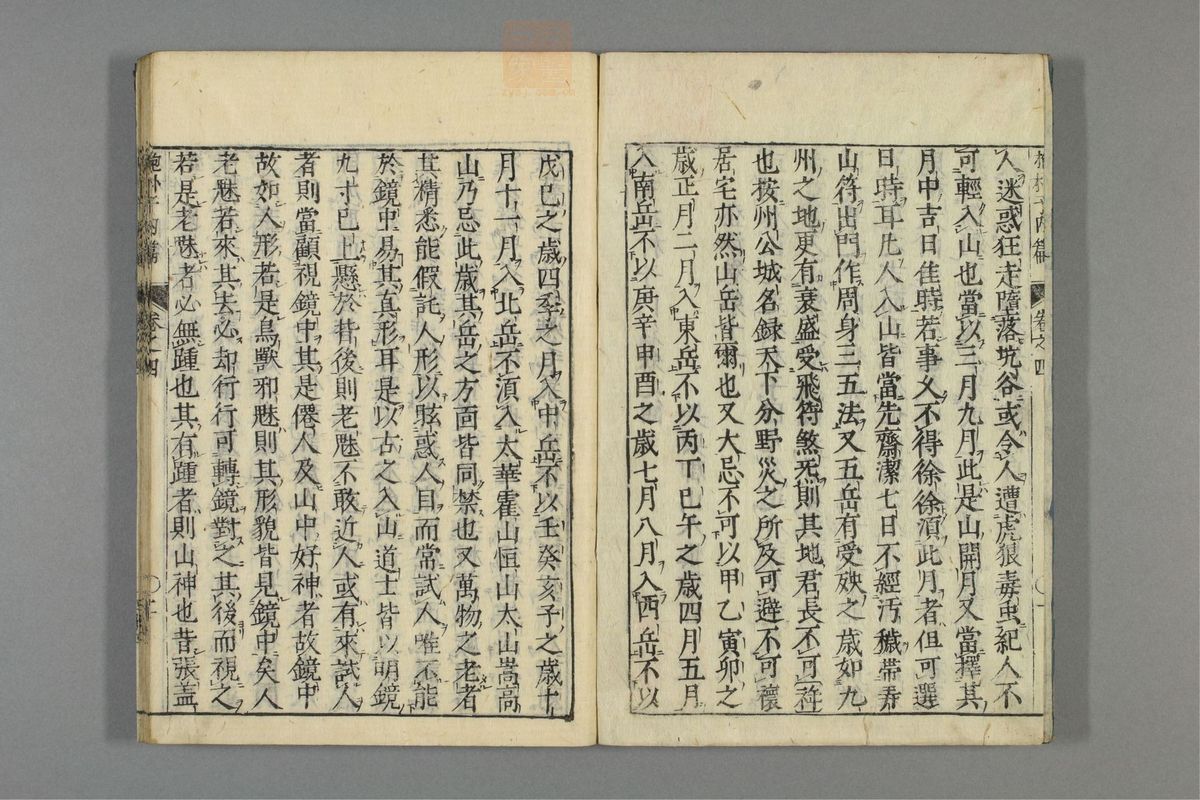 抱朴子内篇 卷之四
人迷惑狂走墮落坑谷或令人遭虎狼毒虫犯人不
可輕入山也當以三月九月此是山開月又當擇其
月中吉日佳時若事久不得徐徐湏此月者但可選
日時耳凡人入山皆當先齋潔七日不經汚穢帶昇
山符出門作周身三五法又五岳有受殃之歳如九
州之地更有衰盛受飛符煞炁則其地君長不可作
也按州公城名録天下分野災之所及可避不可禳
居宅亦然山岳皆爾也又大忌不可以甲乙寅卯之
歳正月二月入東岳不以丙丁巳午之歳四月五月
入南岳不以庚辛申酉之歳七月八月入西岳不以
戊巳之歳四季之月入中岳不以壬癸亥子之歳十
月十一月入北岳不湏入太華霍山恒山太山嵩高
山乃忌此歳其岳之方面皆同禁也又萬物之老者
其精悉能假託人形以眩惑人目而常試人唯不能
於鏡中易其真形耳是以古之入山道士皆以明鏡
九寸已上懸於背後則老魅不敢近人或有來試人
者則當顧視鏡中其是僊人及山中好神者故鏡中
故如人形若是鳥獸邪魅則其形貌皆見鏡中矣人
老魅若來其去必却行行可轉鏡對之其後而視之
若是老魅者必無踵也其有踵者則山神也昔張蓋
抱朴子内篇 卷之四